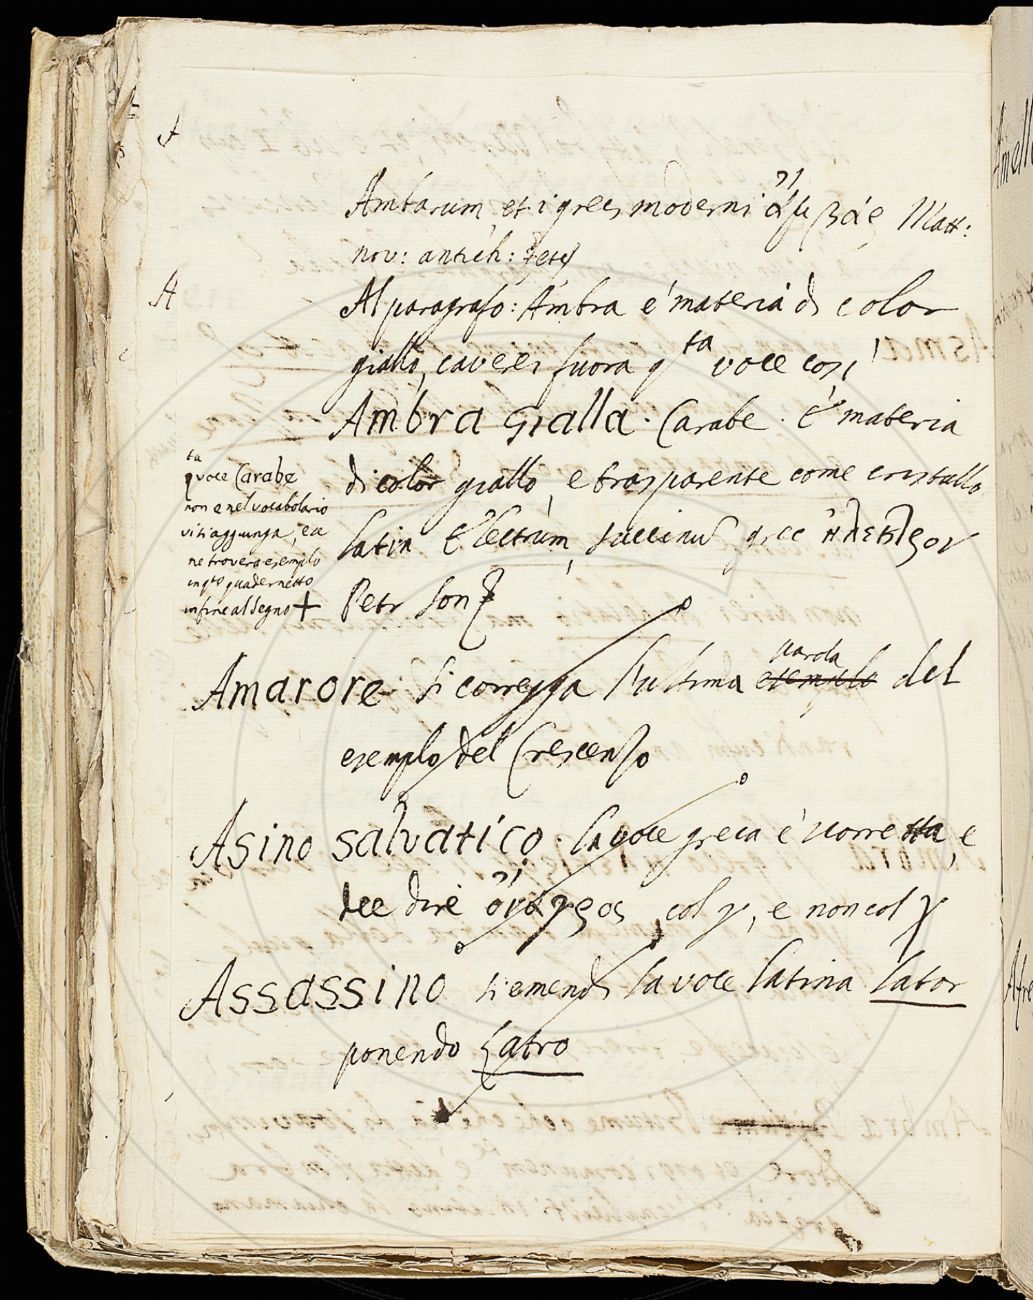 A
Ambarum et i greci moderni ἄμβαρ Matt:
nov: antich:
A
Al paragrafo: Ambra e' materia di color
giallo, cavesi fuora q.ta voce così
Ambra gialla. Carabe. E' materia
di color giallo, e trasparente come cristallo
latin Electrum, succinū grec ἤλεκτρον
Petr Son
q.ta voce Carabe
non e nel vocabolario
vi si aggiunga, e se
ne troverà esemplo
in q.to quadernetto
in fine al segno +
Amarore si corregga l'ultima parola esemplo del
esemplo del Crescenzo
Asino salvatico. la voce greca è scorretta, e
dee dire ὄναγρος col γ, e non col
Assassino si emendi la voce latina Lator
ponendo Latro